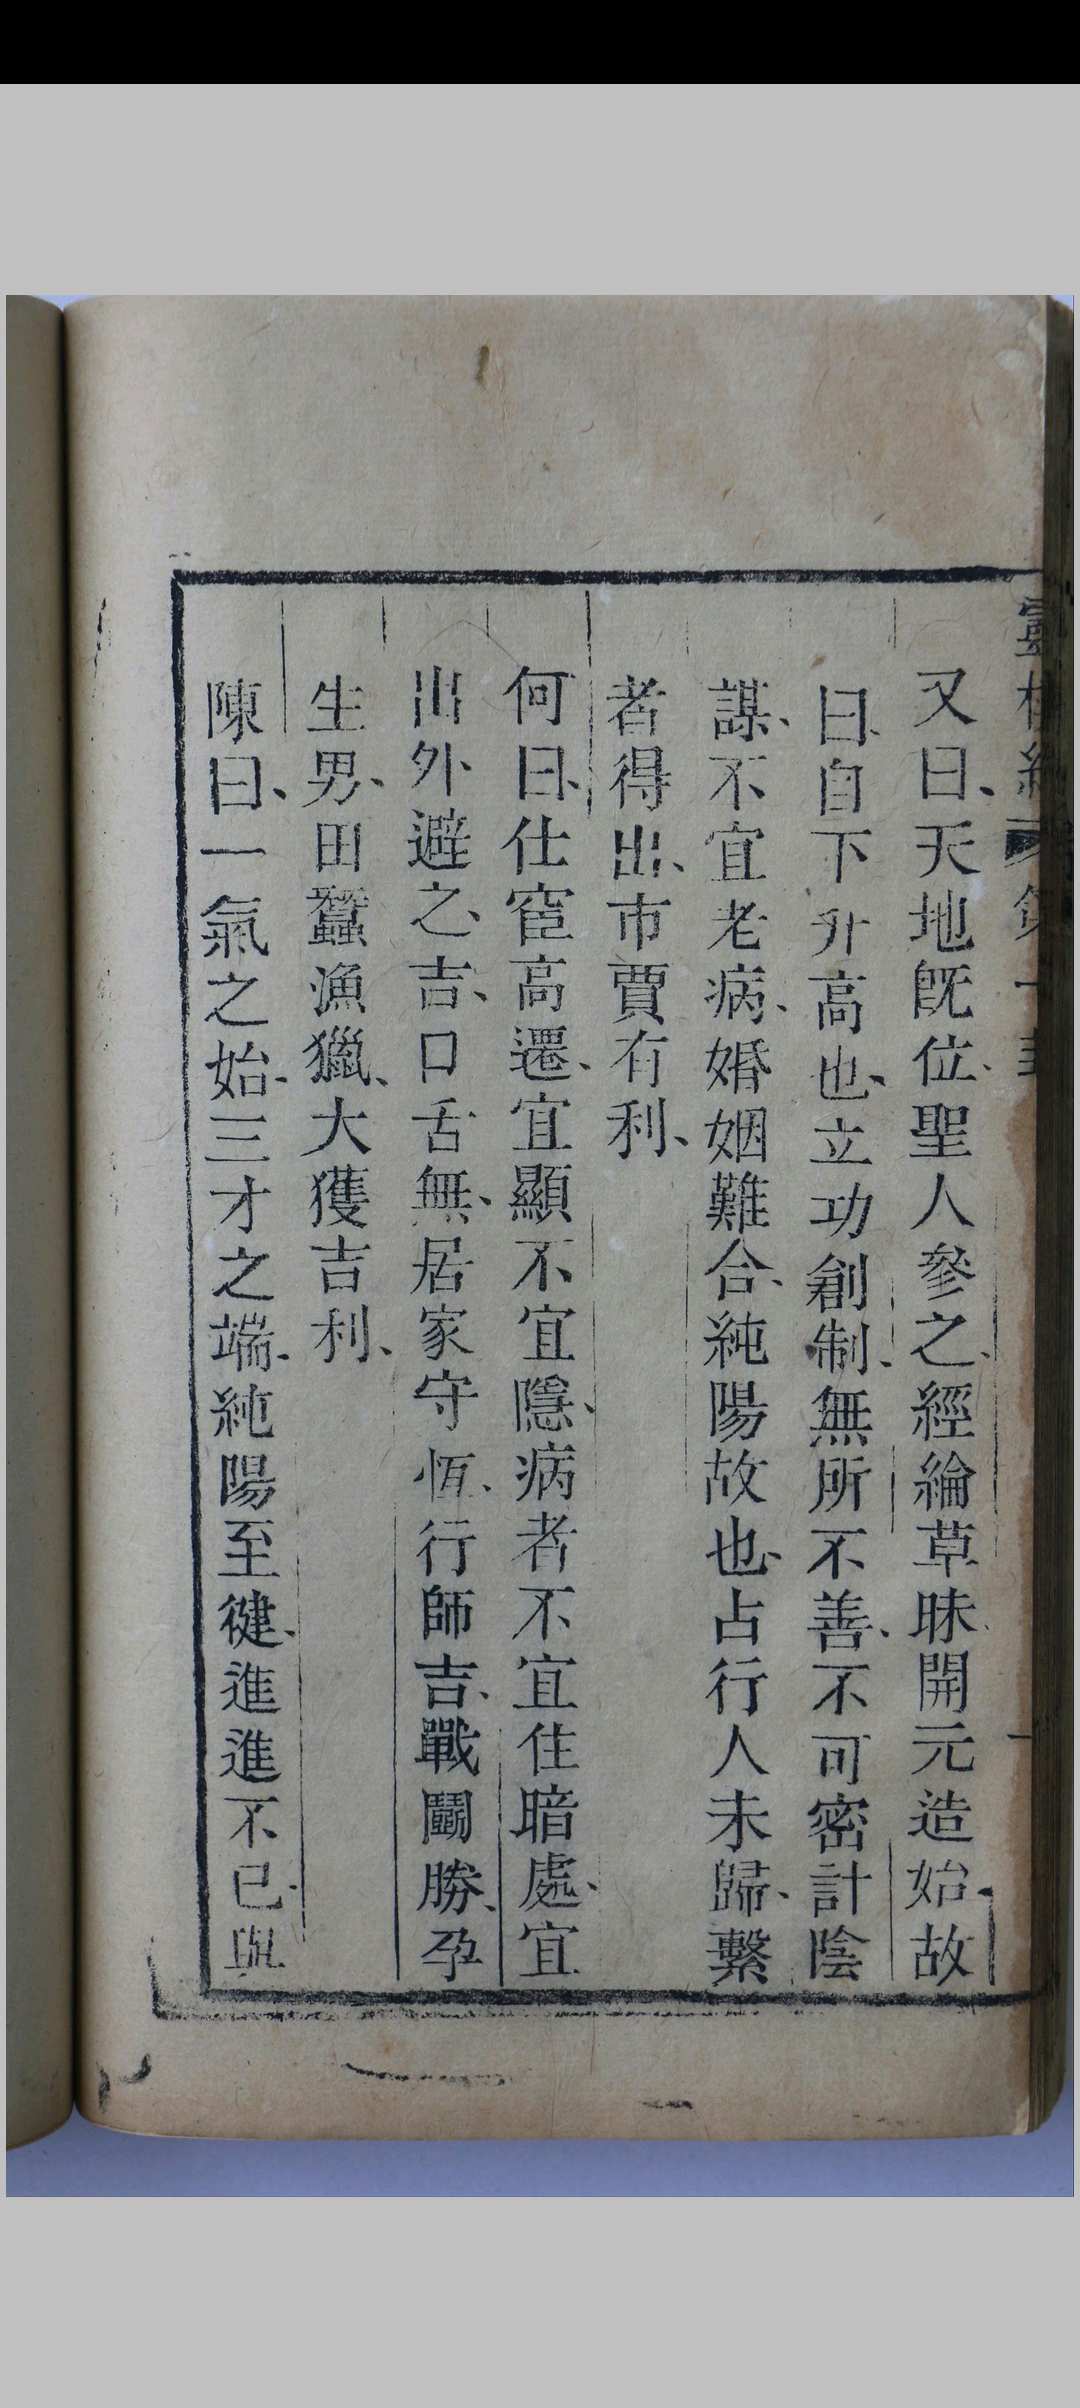 又曰、天地旣位、聖人參之、經綸草昧、開元造始、故
曰、自下升高也、立功創制、無所不善、不可密計陰
謀、不宜老病、婚姻難合、純陽故也、占行人未歸、繫
者得出、市賈有利、
何曰、仕宦高遷、宜顯不宜隱、病者不宜住暗處、宜
出外避之、吉、口舌無、居家守恆、行師吉、戰鬭勝、孕
生男、田蠶漁獵、大獲吉利、
陳曰、一氣之始、三才之端、純陽至健、進進不已、與